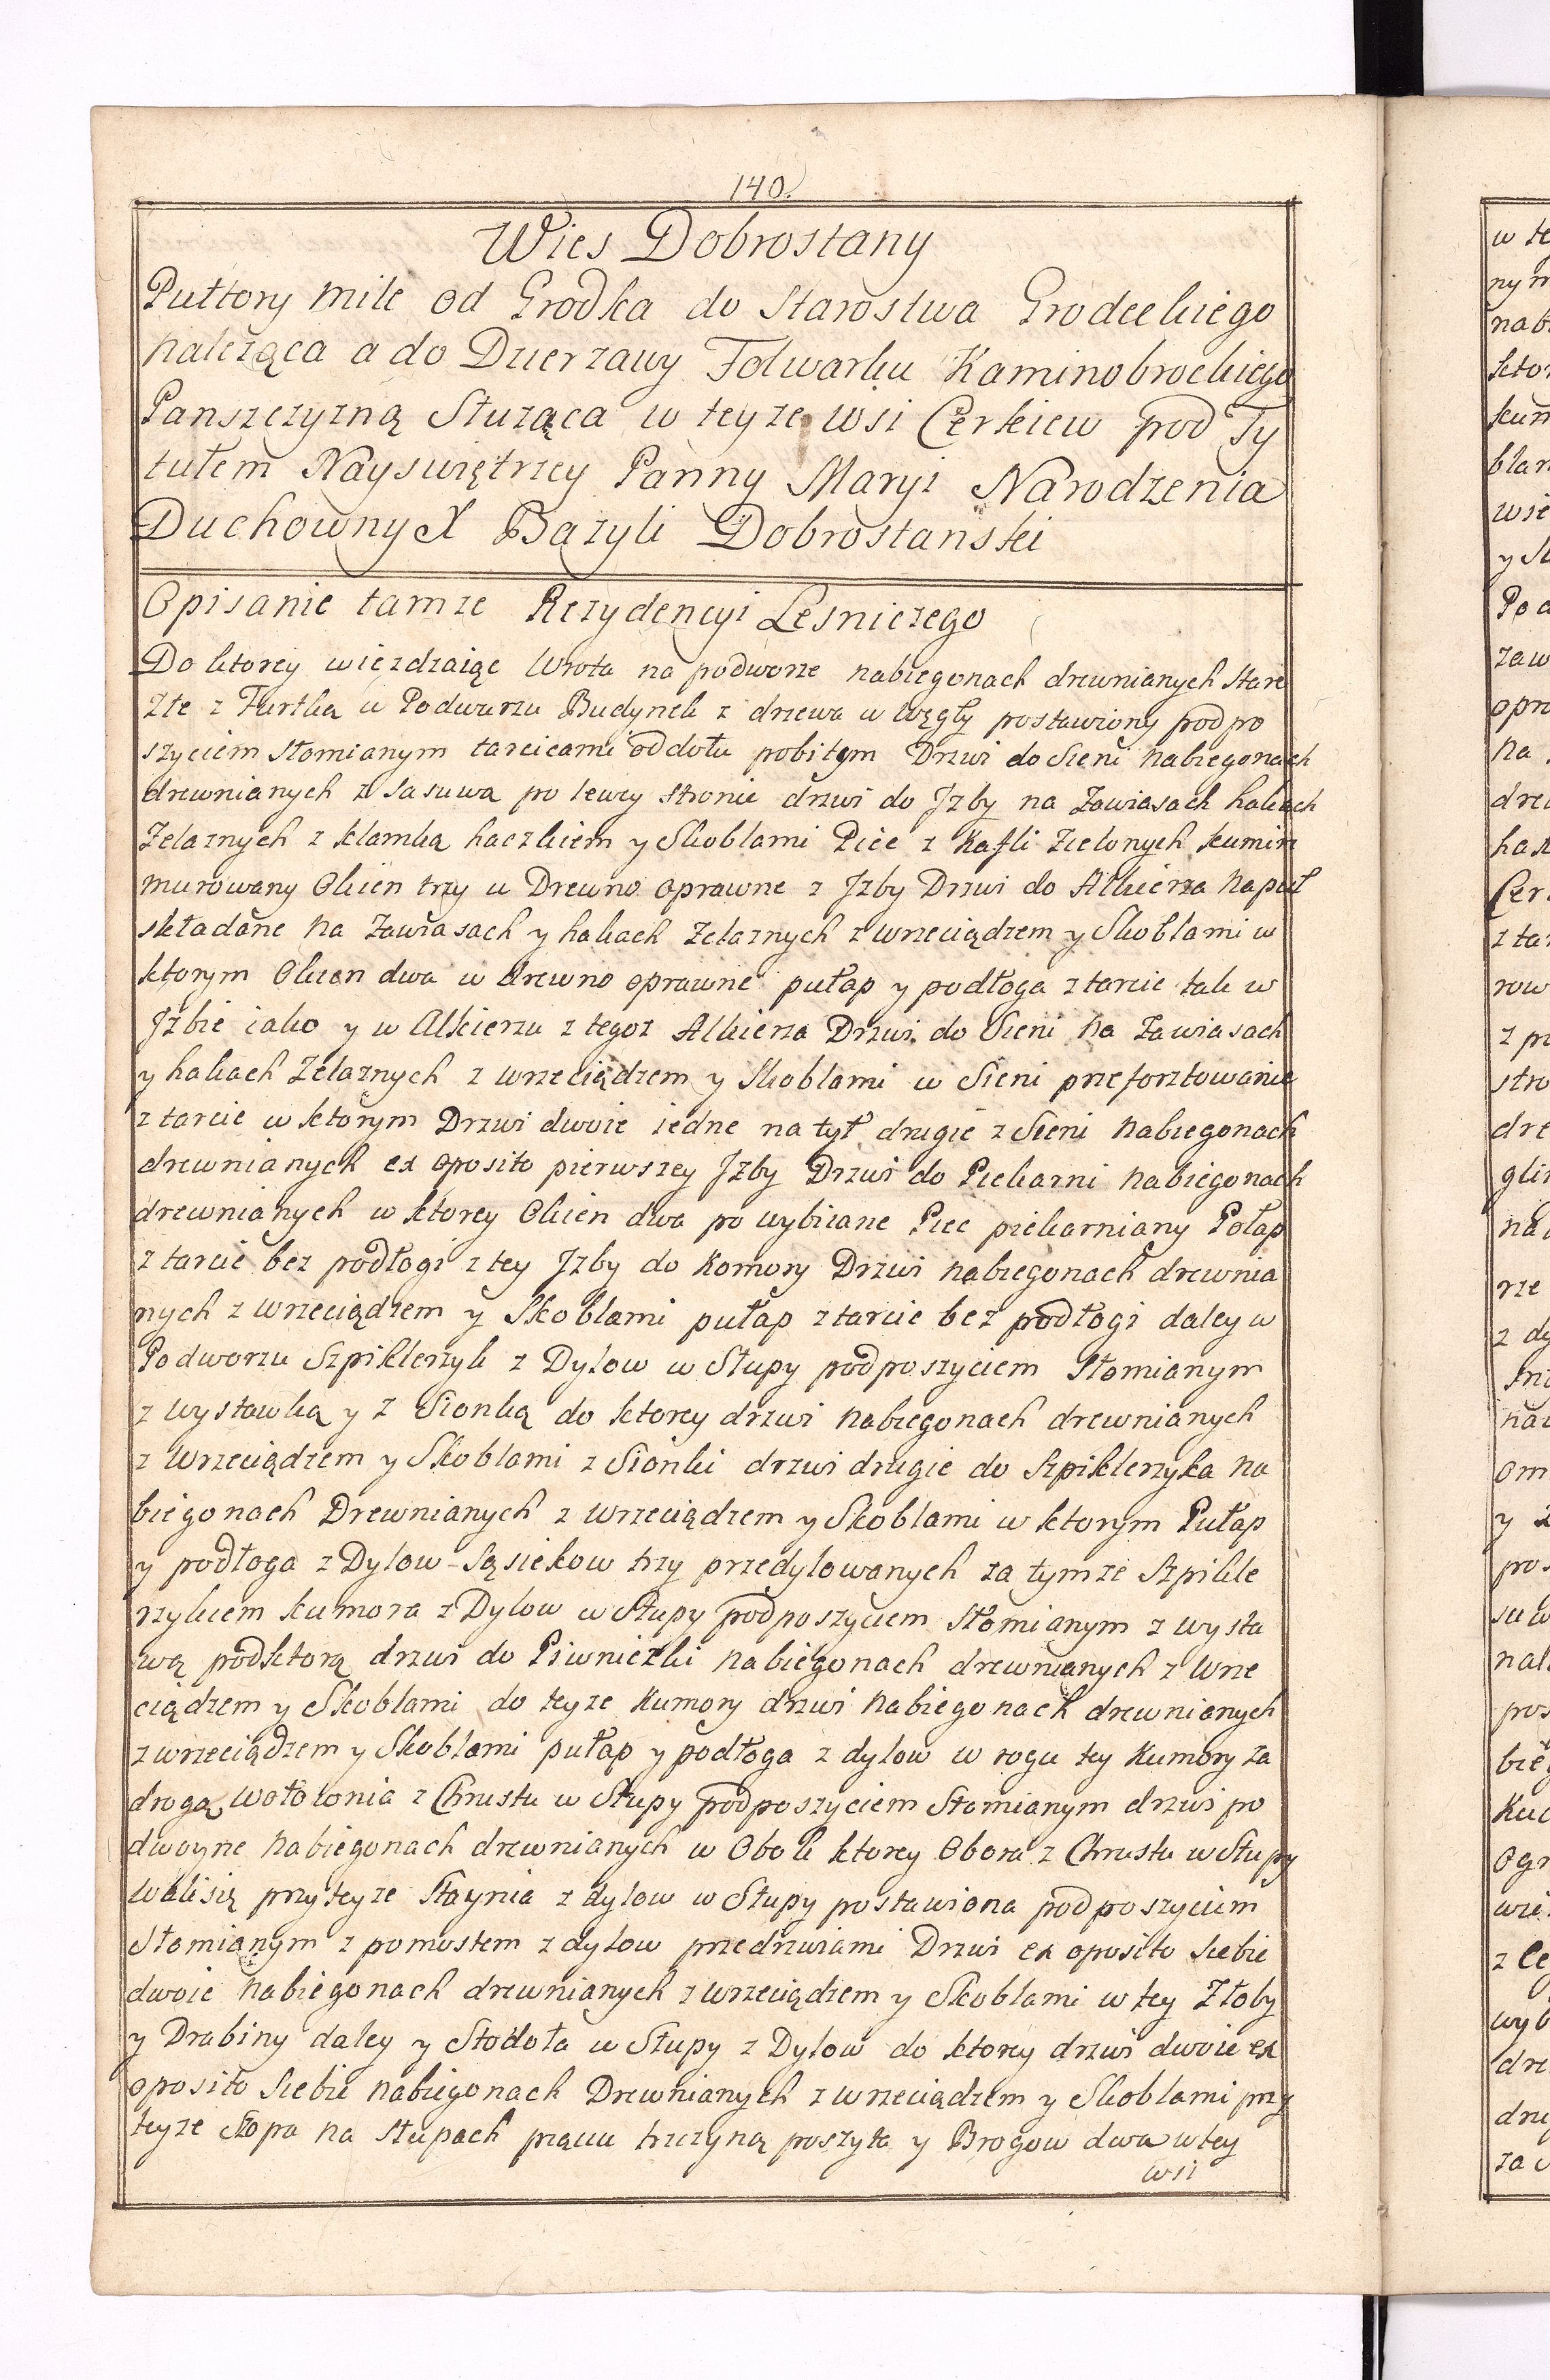 140.
Wies Dobrostany
Pułtory mile od Grodka do Starostwa Grodeckiego
należąca a do Dzierzawy Folwarku Kaminobrockiego
Panszczyzną Słuząca w teyze wsi Cerkiew pod Ty
tułem Nayswiętrzey Panny Maryi Narodzenia
Duchowny X Bazyli Dobrostanski
Opisanie tamze Rezydencyi Lesniczego
Do ktorey wieżdzaiąc Wrota na podworze nabiegonach drewnianych Stare
Złe z Furtką w Podwurzu Budynek z drzewa w węgły postawiony pod po
szyciem słomianym tarcicami oddołu pobitym Drzwi do Sieni nabiegonach
drewnianych z Sasuwą po lewey stronie drzwi do Jzby na Zawiasach hakach
Zelaznych z klamką haczkiem y Skoblami Piec z Kafli Zielonych kumin
murowany Okien trzy w Drewno oprawne z Jzby Drzwi do Alkierza napuł
składane na Zawiasach y hakach Zelaznych z wrzeciądzem y Skoblami w
ktorym Okien dwa w drewno oprawne pułap y podłoga z tarcic tak w
Jzbie iako y w Alkierzu z tegoz Alkierza Drzwi do Sieni na Zawiasach
y hakach Zelaznych z wrzeciądzem y Skoblami w Sieni przeforztowanie
z tarcic w ktorym Drzwi dwoie iedne na tył drugie z Sieni nabiegonach
drewnianych ex oposito pierwszey Jzby Drzwi do Piekarni nabiegonach
drewnianych w ktorey Okien dwa po wybiiane Piec piekarniany Połap
z tarcic bez podłogi z tey Jzby do Komory Drzwi nabiegonach drewnia
nych z wrzeciądzem y Skoblami pułap z tarcic bez podłogi daley w
Podworzu Szpiklerzyk z Dylow w Słupy podposzyciem Słomianym
z wystawką y z Sionką do ktorey drzwi nabiegonach drewnianych
z Wrzeciądzem y Skoblami z Sionki drzwi drugie do Szpiklerzyka na
biegonach Drewnianych z wrzeciądzem y Skoblami w ktorym Pułap
y podłoga z Dylow Sąsiekow trzy przedylowanych za tymze Szpikle
rzykiem kumora z Dylow w Słupy podposzyciem Słomianym z wysta
wą podktorą drzwi do Piwniczki nabiegonach drewnianych z Wrze
ciądzem y Skoblami do teyze Kumory drzwi nabiegonach drewnianych
z wrzeciądzem y Skoblami pułap y podłoga z dylow w rogu tey Kumory za
drogą Wołownia z Chrustu w Słupy podposzyciem Słomianym drzwi po
dwoyne nabiegonach drewnianych w Obok ktorey Obora z Chrustu w Słupy
wali się przyteyze Staynia z dylow w Słupy postawiona podposzyciem
Słomianym z pomostem z dylow przedrzwiami Drzwi ex oposito siebie
dwoie nabiegonach drewnianych z wrzeciądzem y Skoblami w tey Złoby
y Drabiny daley y Stodoła w Słupy z Dylow do ktorey drzwi dwoie ex
oposito siebie nabiegonach Drewnianych z wrzeciądzem y Skoblami przy
teyze Szopa na słupach trzczyną poszyta y Brogow dwa w tey
wsi